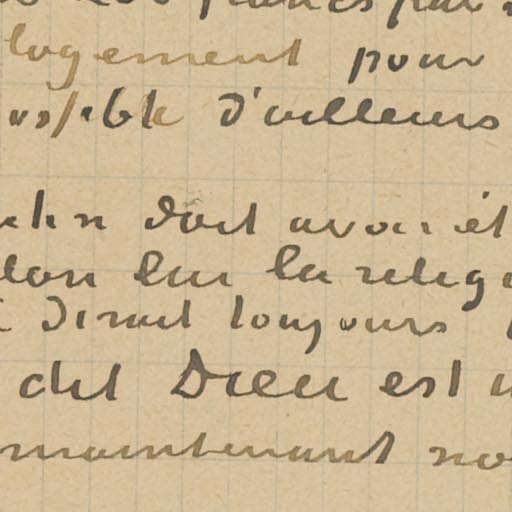 francs par
logement pour
ossible d'ailleurs
doit avoir ét
lon sur la relig
dirait toujours
dit Dieu est
maintenant no